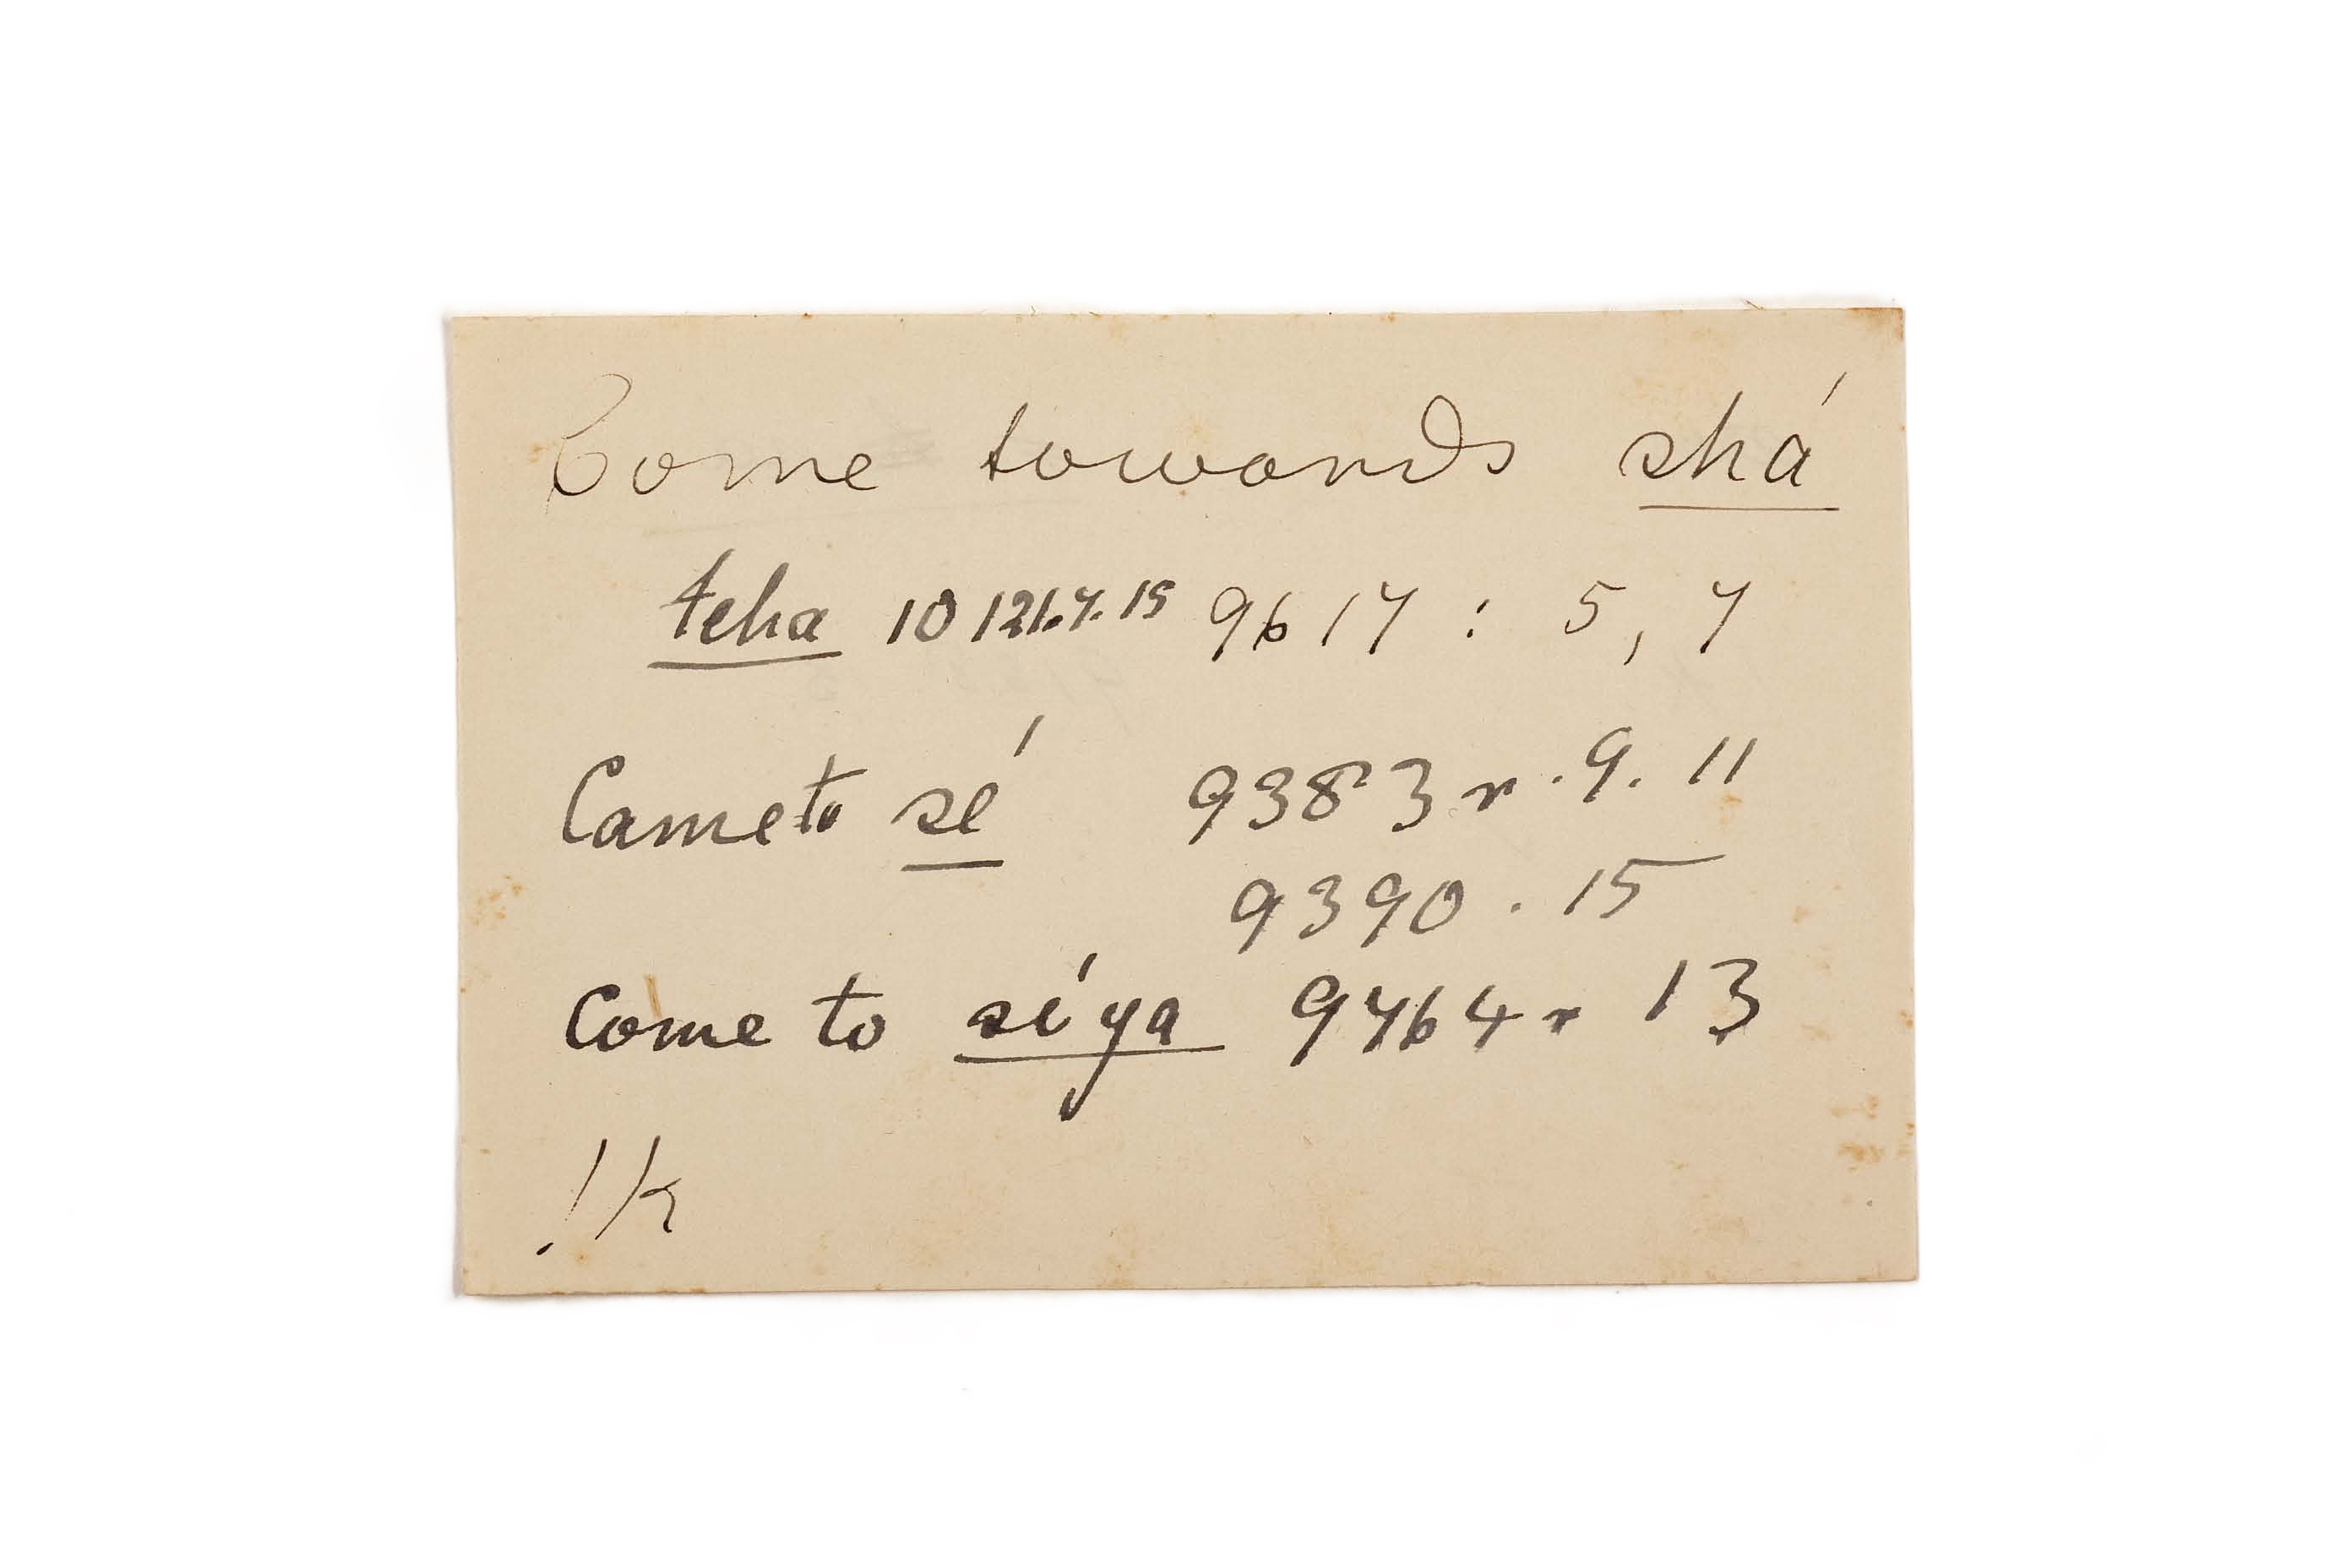 Come towards shá
teha 10121.7.15 9617 : 5, 7
Came to sé 9383r.9.11
9390.15
Come to séya 9764r 13
!k